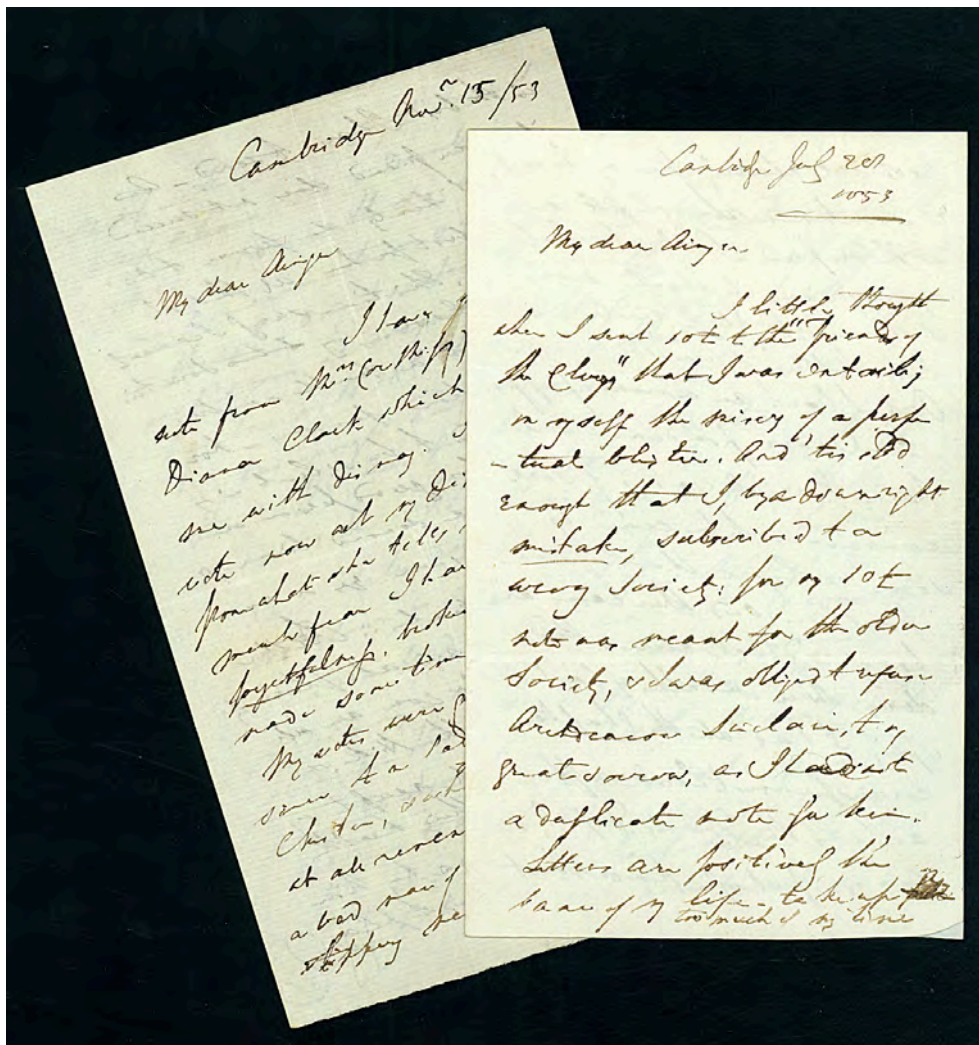 Cambridge Nov.r 15/53
My dear Ainger
I have
note from Mrs (or Miss)
Diana Clark which
me with dismay.
vote now at my dis
from what she tells
much fear I have
forgetfulness, broke
made some time
My votes were
some
at all
a bad man
slippery
Cambridge July 28
1853
My dear Ainger
I little thought
when I sent 10£ to the "Friends of
the Clergy" that I was entailing
on myself the misery of a perpe
-tual blister. And 'tis odd
enough that I, by a downright
mistake, subscribed to a
wrong Society: for my 10£
note was meant for the older
Society, & I was obliged to refuse
Archdeacon Sinclair, to my
great sorrow, as I had not
a duplicate note for him.
Letters are positively the
bane of my life - take up
too much of my time